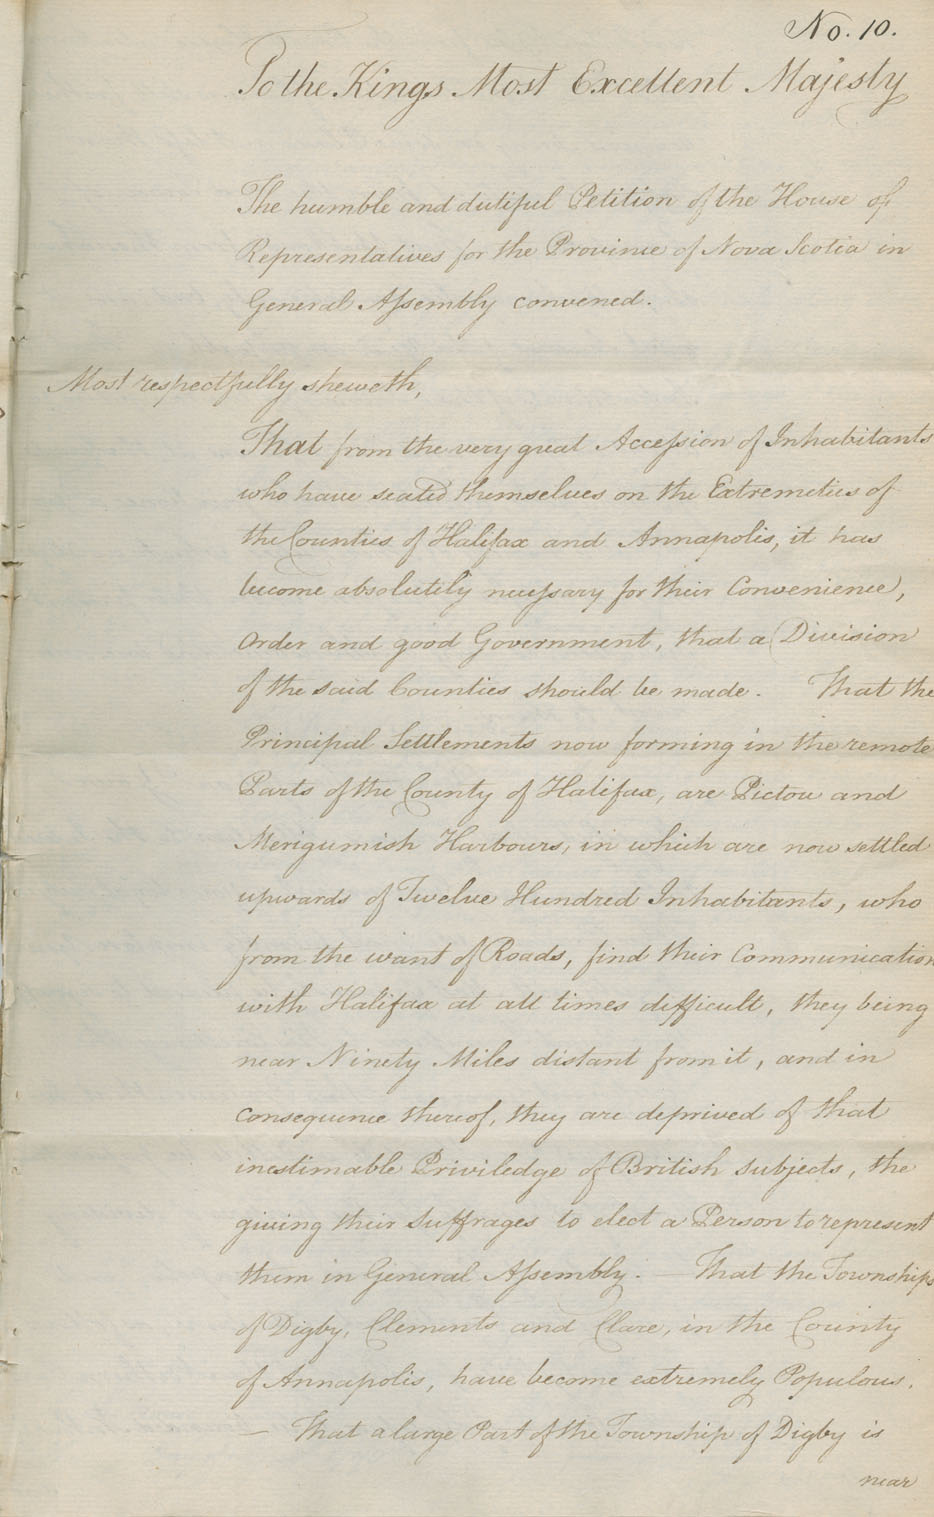 No. 10.
To the Kings Most Excellent Majesty
The humble and dutiful Petition of the House of
Representatives for the Province of Nova Scotia in
General Assembly convened.
Most respectfully sheweth,
That from the very great Accession of Inhabitants
who have seated themselves on the Extremeties of
the Counties of Halifax and Annapolis, it has
become absolutely necessary for their Convenience,
Order and good Government, that a Division
of the said Counties should be made. That the
Principal Settlements now forming in the remote
Parts of the County of Halifax, are Pictou and
Merigumish Harbours, in which are now settled
upwards of Twelve Hundred Inhabitants, who
from the want of Roads, find their Communication
with Halifax at all times difficult, they being
near Ninety Miles distant from it, and in
consequence thereof, they are deprived of that
inestimable Priviledge of British subjects, the
giving their Suffrages to elect a Person to represent
them in General Assembly. — That the Townships
of Digby, Clements and Clare, in the County
of Annapolis, have become extremely Populous.
— That a large Part of the Township of Digby is
near